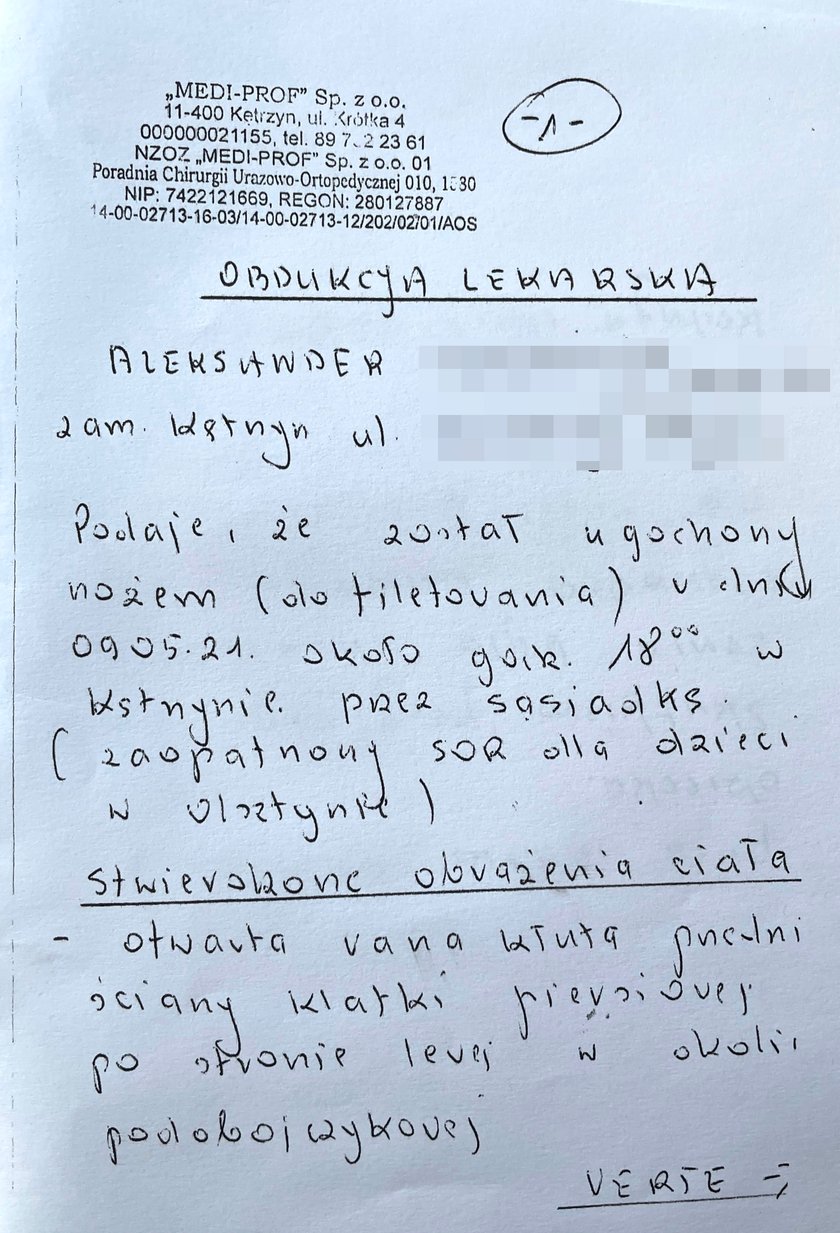 „MEDI-PROF” Sp. z o.o.
11-400 Kętrzyn, ul. Krótka 4
000000021155, tel. 89 7 2 23 61
NZOZ „MEDI-PROF” Sp. z o.o. 01
Poradnia Chirurgii Urazowo-Ortopedycznej 010,
NIP: 7422121669, REGON: 280127887
14-00-02713-16-03/14-00-02713-12/202/02/01/AOS
-1-
OBDUKCJA LEKARSKA
ALEKSANDER
zam. Kętrzyn ul.
Podaje, że został ugodzony
nożem (do filetowania) w dniu
09.05.21. około godz. 18⁰⁰ w
Kętrzynie. przez sąsiadkę.
(zaopatrzony SOR dla dzieci
w Olsztynie)
Stwierdzone obrażenia ciała
- otwarta rana kłuta przedni
ściany klatki piersiowej
po stronie lewej w okolic
podobojczykowej
VERTE